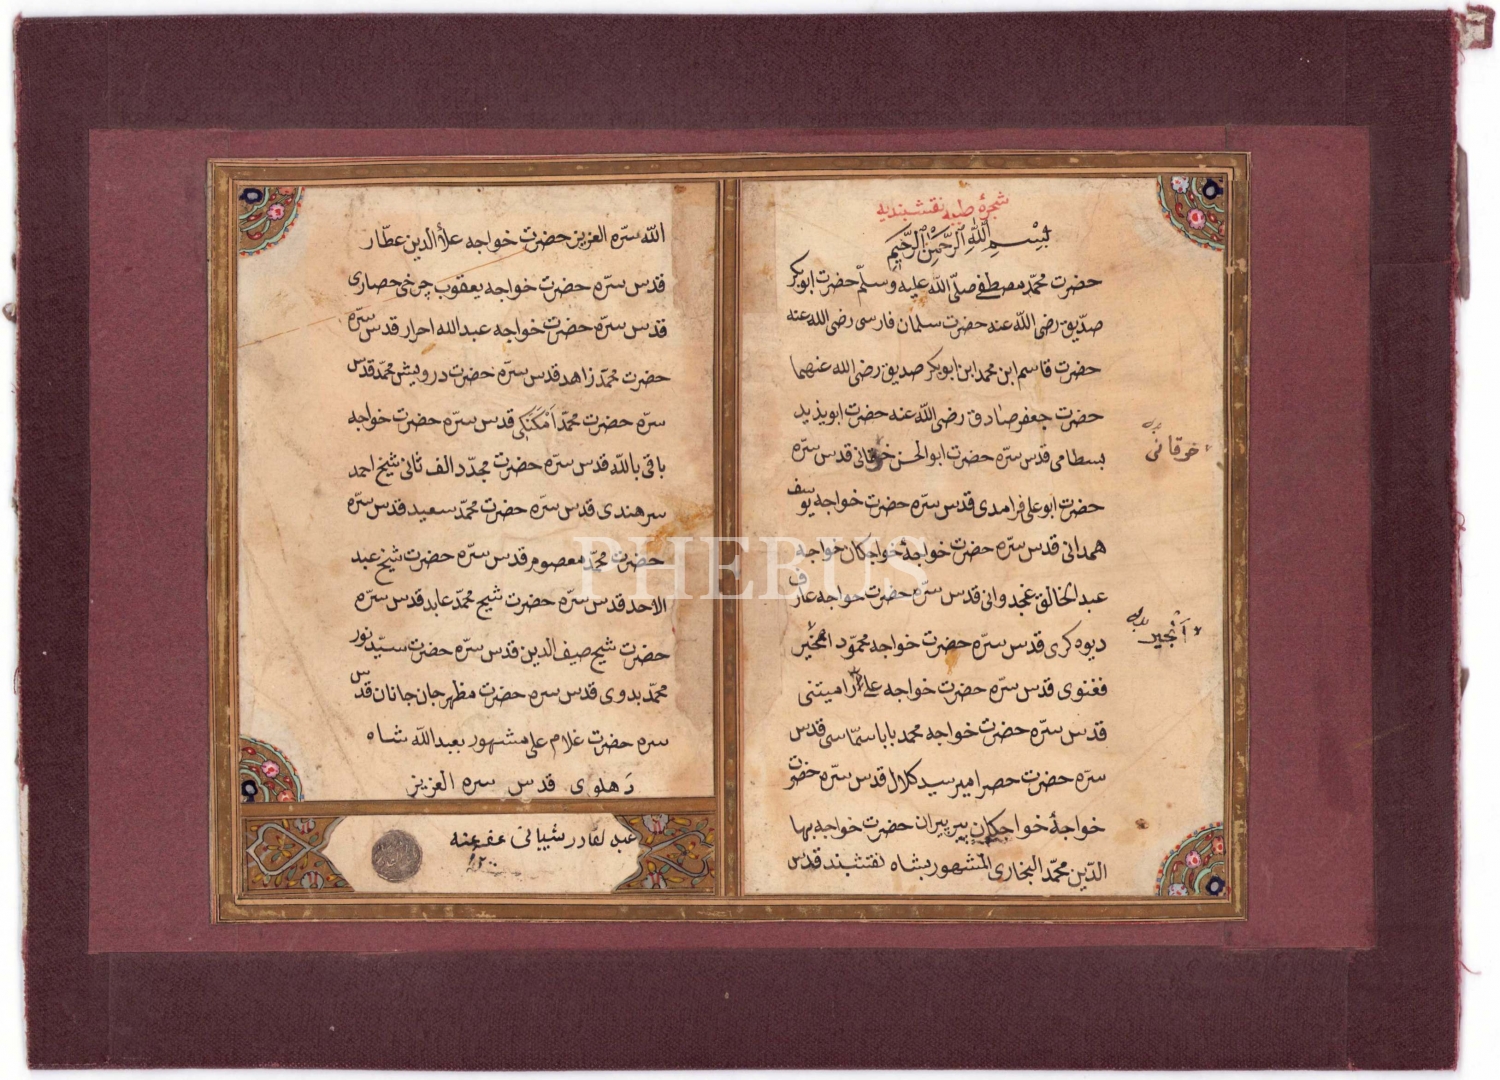 شجرهٔ طیبه نقشبندیه
بِسْمِ اللّٰهِ الرَّحْمٰنِ الرَّحِيمِ
حضرت محمّد مصطفی صلّی اللّٰه علیه وسلّم حضرت ابوبکر
صدّیق رضی اللّٰه عنه حضرت سلمان فارسی رضی الله عنه
حضرت قاسم ابن محمد ابن ابوبکر صدیق رضی الله عنهما
حضرت جعفر صادق رضی اللّٰه عنه حضرت ابویذید
بسطامی قدس سرّه حضرت ابوالحسن خرقانی قدس سرّه
خرقانی
حضرت ابو علی فرامدی قدس سرّه حضرت خواجه یوسف
همدانی قدس سرّه حضرت خواجهٔ خواجکان خواجه
عبد الخالق غجدوانی قدس سرّه حضرت خواجه عارف
دیوه کری قدس سرّه حضرت خواجه محمود
فغنوی قدس سرّه حضرت خواجه علی رامیتنی
قدس سرّه حضرت خواجه محمد بابا سمّاسی قدس
سرّه حضرت امیر سید کلال قدس سرّه حضرت
خواجهٔ خواجکان پیر پیران حضرت خواجه بها
الدّین محمّد البخاری المشهور بشاه نقشبند قدس
اللّٰه سرّه العزیز حضرت خواجه علأ الدین عطّار
قدس سرّه حضرت خواجه یعقوب چرخی حصاری
قدس سرّه حضرت خواجه عبد الله احرار قدس سرّه
حضرت محمّد زاهد قدس سرّه حضرت درویش محمّد قدس
سرّه حضرت محمّد اَمْکَنَکی قدس سرّه حضرت خواجه
باقی بالله قدس سرّه حضرت مجدّد الف ثانی شیخ احمد
سرهندی قدس سرّه حضرت محمّد سعید قدس سرّه
حضرت محمّد معصوم قدس سرّه حضرت شیخ عبد
الاحد قدس سرّه حضرت شیخ محمّد عابد قدس سرّه
حضرت شیخ صیف الدین قدس سرّه حضرت سیّد نور
محمّد بدوی قدس سره حضرت مظهر جان جانان قدس
سره حضرت غلام علی مشهور بعبد اللّٰه شاه
دَهلوی قدس سره العزیز
عبد لقادر شیبانی عفی عنه
PHEBUS